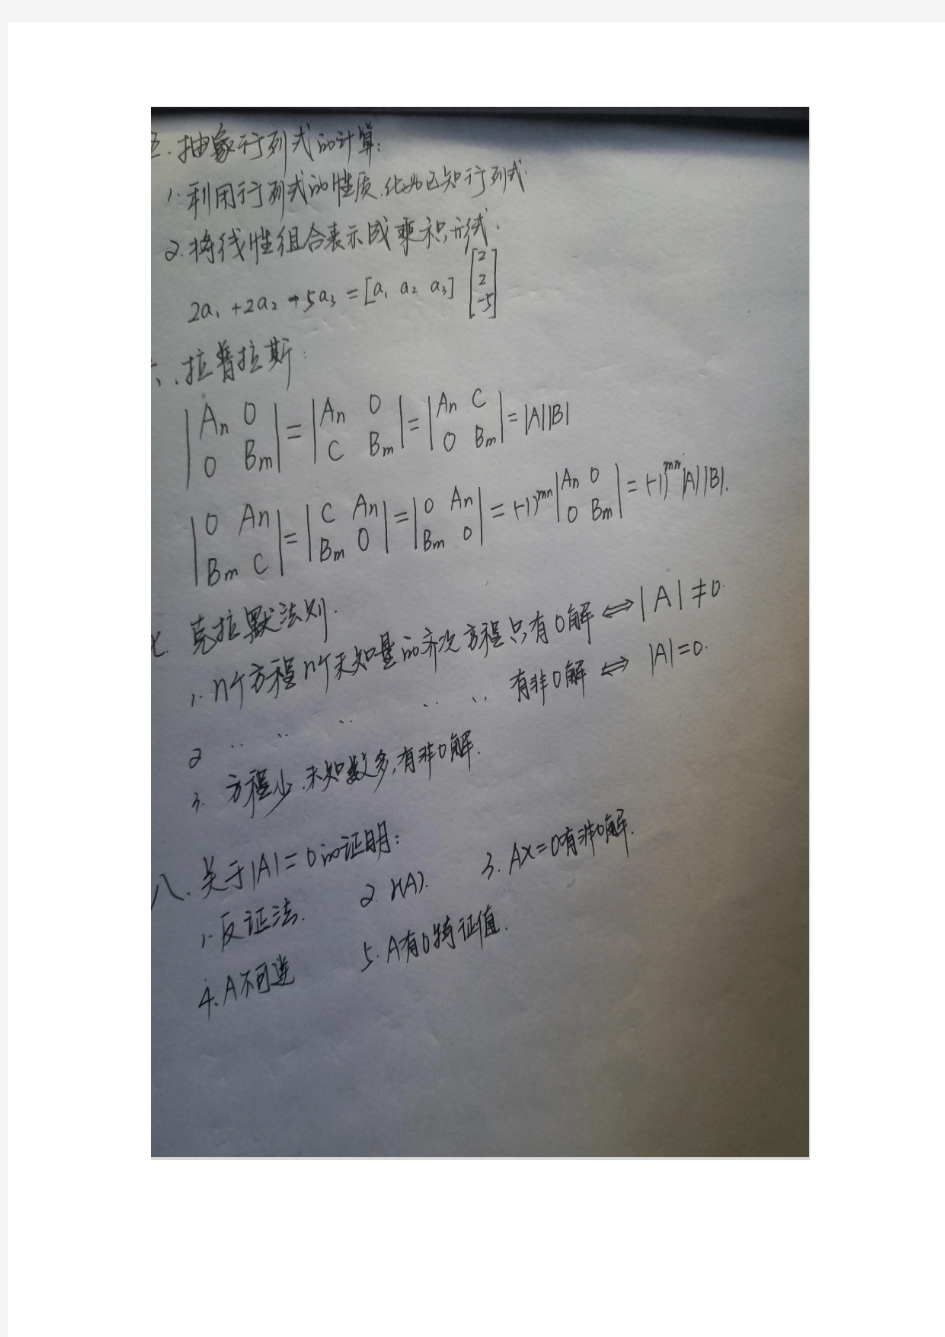 五.抽象行列式的计算:
1.利用行列式的性质,化为已知行列式.
2.将线性组合表示成乘积形式.
2a₁+2a₂-5a₃=[a₁ a₂ a₃] [2 2 -5]
六、拉普拉斯:
|Aₙ 0; 0 Bₘ|=|Aₙ 0; C Bₘ|=|Aₙ C; 0 Bₘ|=|A||B|
|0 Aₙ; Bₘ C|=|C Aₙ; Bₘ 0|=|0 Aₙ; Bₘ 0|=(-1)ᵐⁿ|Aₙ 0; 0 Bₘ|=(-1)ᵐⁿ|A||B|.
七 克拉默法则.
1.n个方程n个未知量的齐次方程只有0解⇔|A|≠0.
2 ‥ ‥ ‥ ‥ ‥ 有非0解⇔|A|=0.
3.方程少.未知数多,有非0解.
八.关于|A|=0的证明:
1.反证法. 2.r(A). 3.AX=0有非0解.
4.A不可逆 5.A有0特征值.